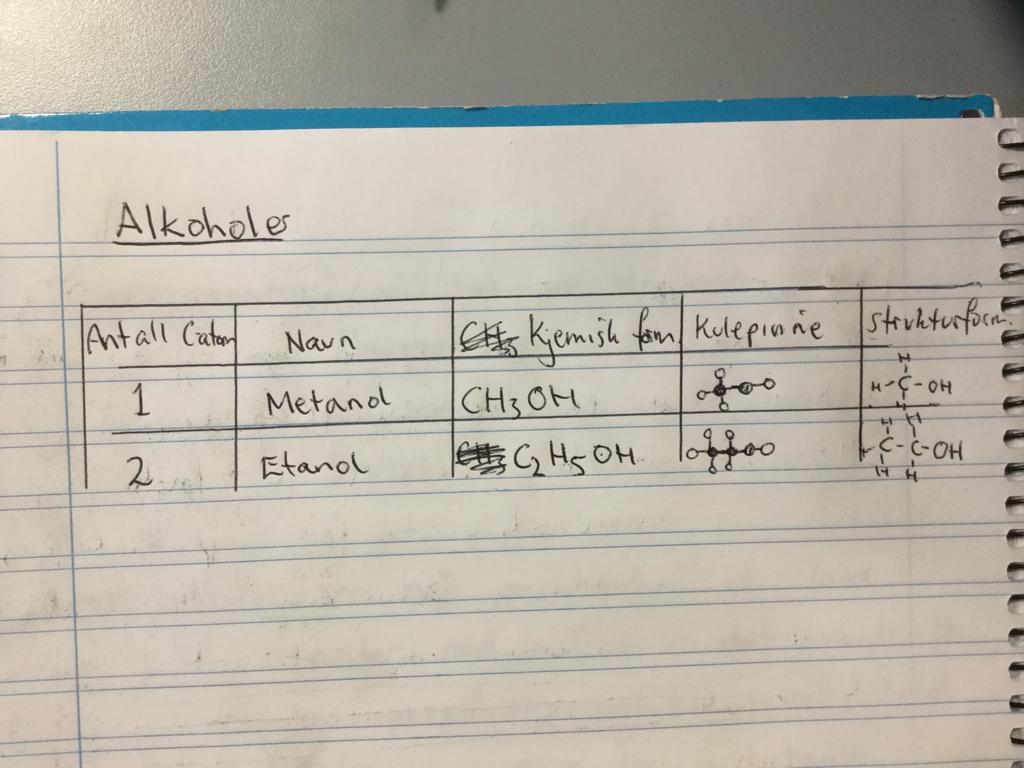 Alkoholer
Antall Catom Navn Kjemisk form Kulepinne Strukturform.
1 Metanol CH3OH H-C-OH H H
2 Etanol C2H5OH H H C-C-OH H H